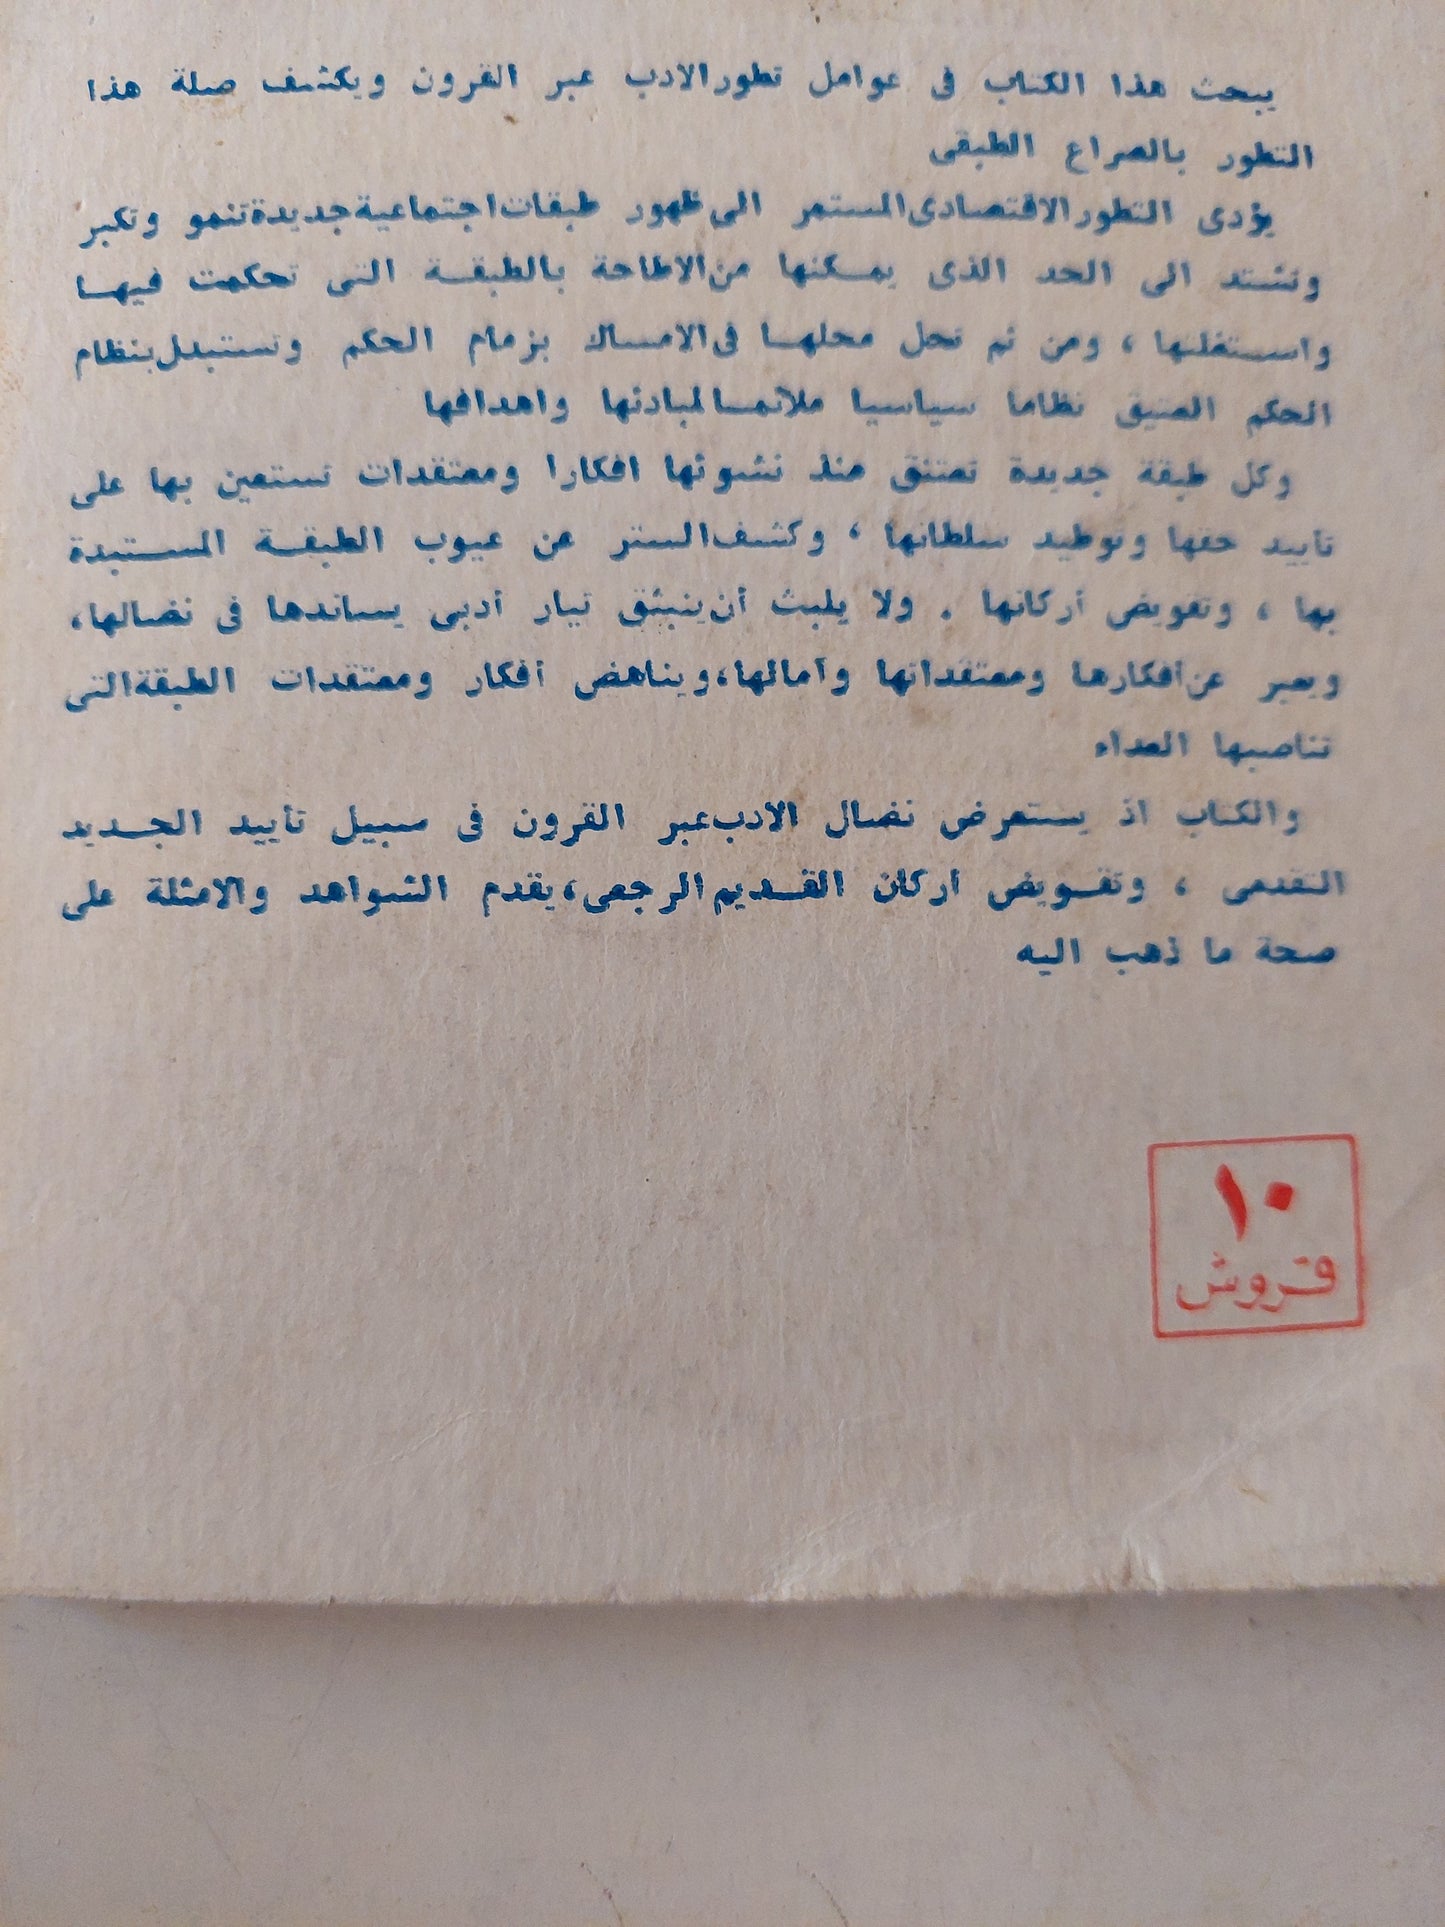 يبحث هذا الكتاب فى عوامل تطور الادب عبر القرون ويكشف صلة هذا
التطور بالصراع الطبقى
يؤدى التطور الاقتصادى المستمر الى ظهور طبقات اجتماعية جديدة تنمو وتكبر
وتشتد الى الحد الذى يمكنها من الاطاحة بالطبقة التى تحكمت فيها
واستغلتها ، ومن ثم تحل محلها فى الامساك بزمام الحكم وتستبدل بنظام
الحكم العتيق نظاما سياسيا ملائما لمبادئها واهدافها
وكل طبقة جديدة تعتنق منذ نشوئها افكارا ومعتقدات تستعين بها على
تأييد حقها وتوطيد سلطانها ، وكشف الستر عن عيوب الطبقة المستبدة
بها ، وتقويض أركانها . ولا يلبث أن ينبثق تيار أدبى يساندها فى نضالها،
ويعبر عن أفكارها ومعتقداتها وآمالها، ويناهض أفكار ومعتقدات الطبقة التى
تناصبها العداء
والكتاب اذ يستعرض نضال الادب عبر القرون فى سبيل تأييد الجديد
التقدمى ، وتقويض أركان القديم الرجعى، يقدم الشواهد والامثلة على
صحة ما ذهب اليه
١٠
قروش